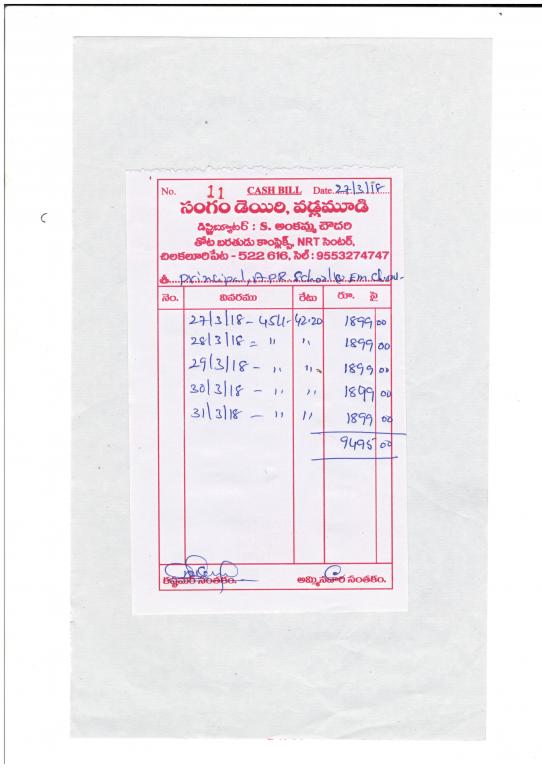 No. 11 CASH BILL Date. 27/3/18
సంగం డెయిరి, వడ్లమూడి
డిస్ట్రిబ్యూటర్ : S. అంకమ్మ చౌదరి
తోట బరతుడు కాంప్లెక్స్, NRT సెంటర్,
చిలకలూరిపేట - 522 616, సెల్ : 9553274747
శ్రీ. Principal, A.P.R. School
నెం. వివరము రేటు రూ. పై
27/3/18 - 45L- 42.20 1899 00
28/3/18 = " " 1899 00
29/3/18 - " " 1899 00
30/3/18 - " " 1899 00
31/3/18 - " " 1899 00
9495 00
కష్టమర్ సంతకం. అమ్మినవారి సంతకం.